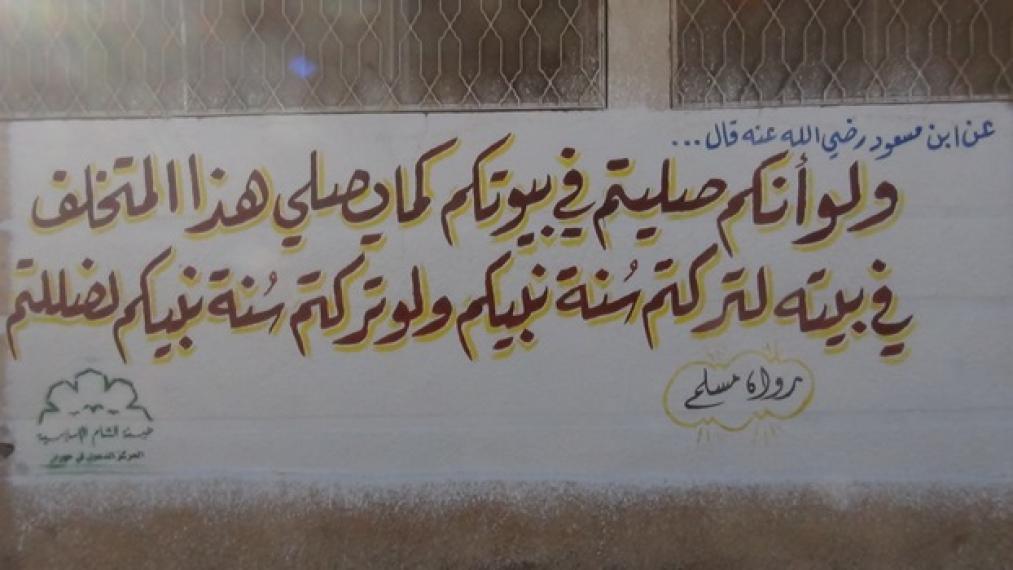 عن ابن مسعود رضي الله عنه قال ...
ولو أنكم صليتم في بيوتكم كما يصلي هذا المتخلف
في بيته لتركتم سُنة نبيكم ولو تركتم سُنة نبيكم لضللتم
رواه مسلم
هيئة الشام الإسلامية
المركز الدعوي في